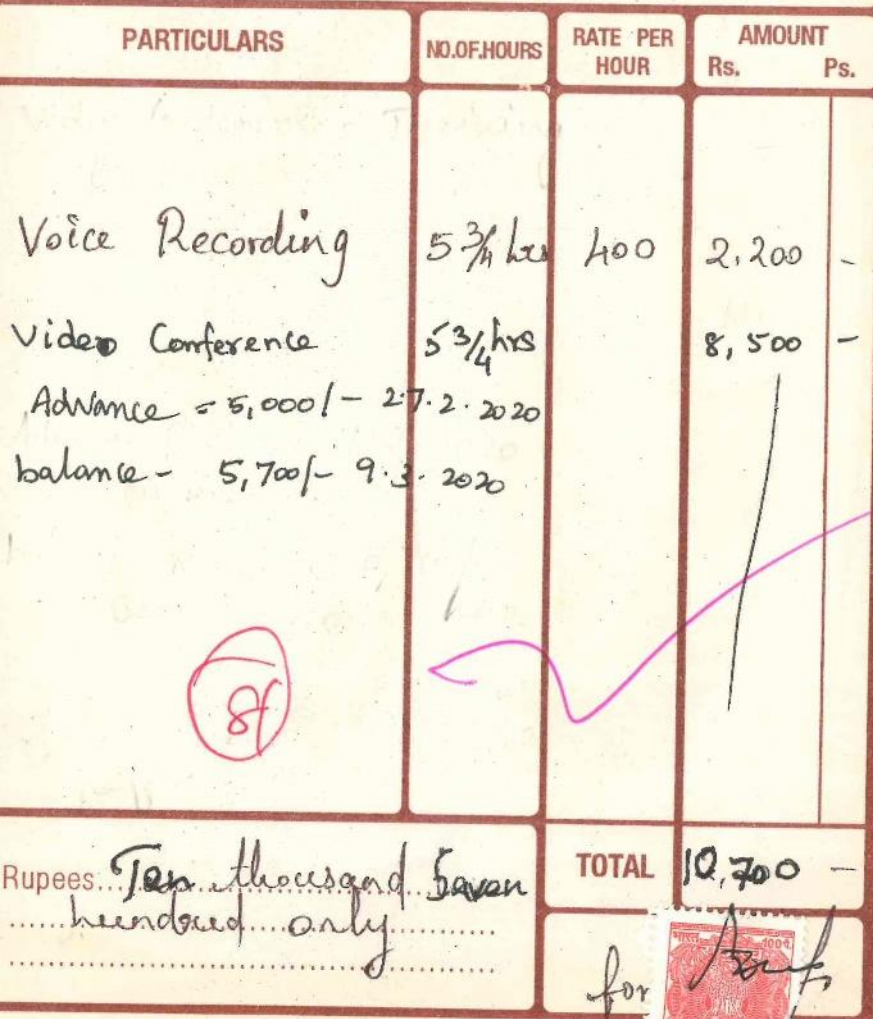 PARTICULARS NO.OF.HOURS RATE PER HOUR AMOUNT
Rs. Ps.
Voice Recording 5 3/4 hrs 400 2,200 -
Video Conference 5 3/4 hrs 8,500 -
Advance = 5,000/- 27.2.2020
balance - 5,700/- 9.3.2020
Rupees Ten thousand Seven TOTAL 10,700 -
hundred only
for
भारत